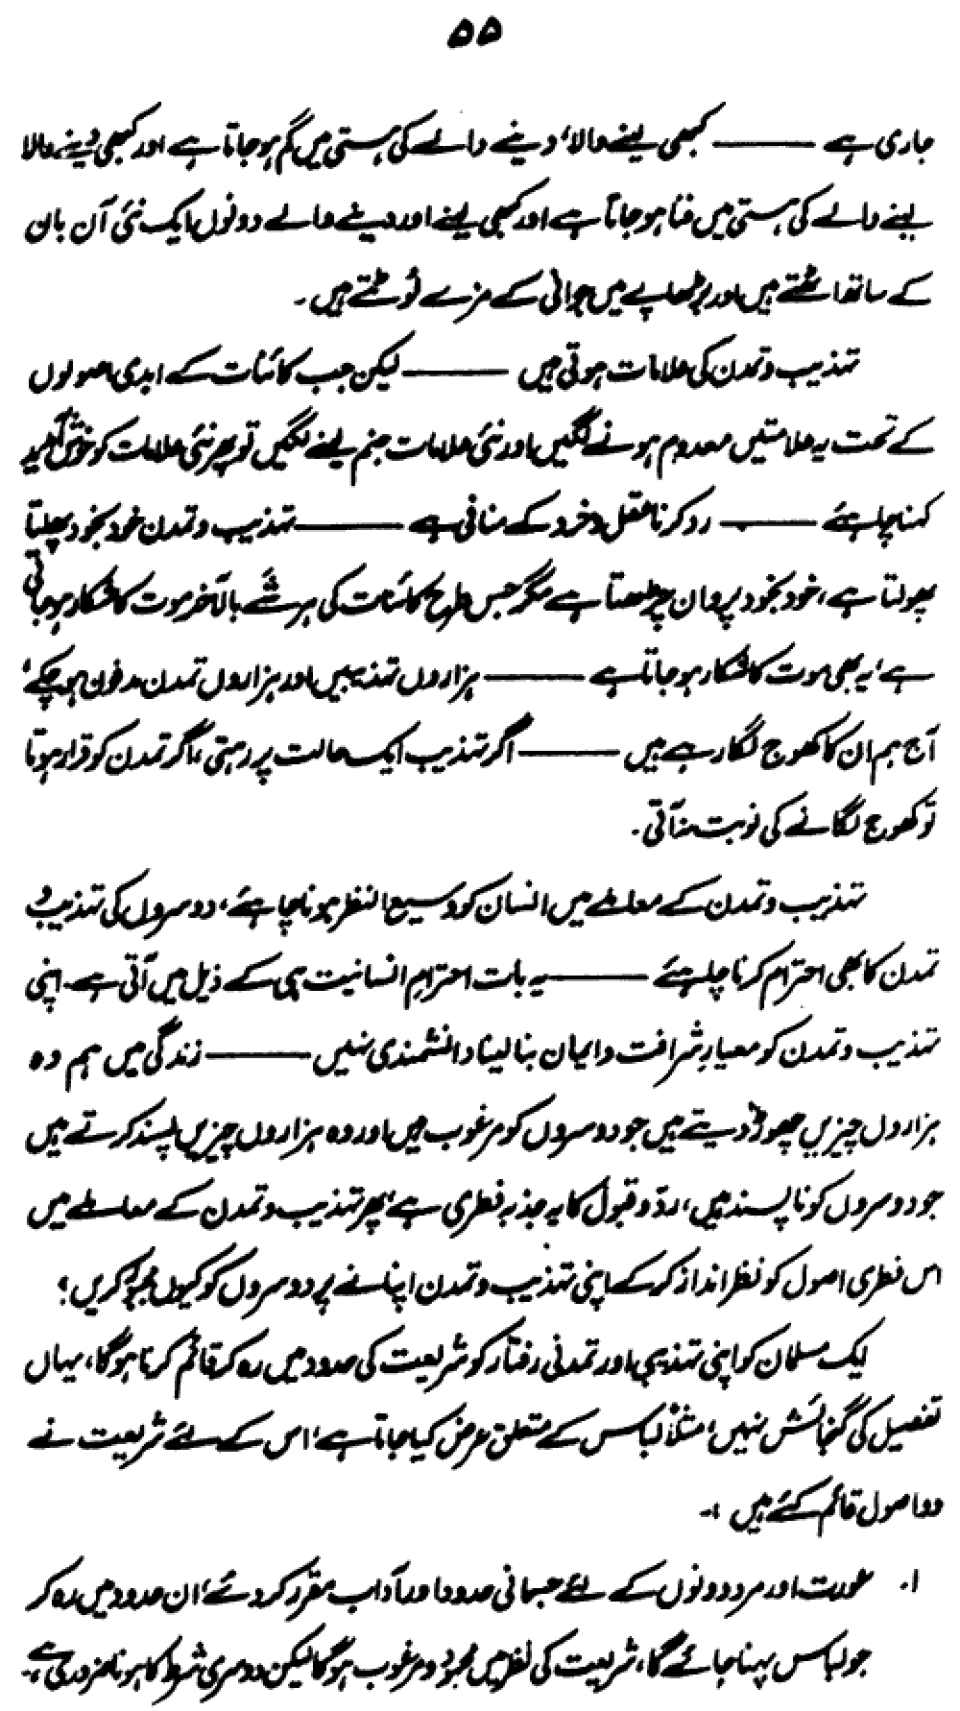 ۵۵
جاری ہے ——— کبھی لینے والا، دینے والے کی ہستی میں گم ہوجاتا ہے اور کبھی دینے والا
لینے والے کی ہستی میں فنا ہوجاتا ہے اور کبھی لینے اور دینے والے دونوں ایک نئی آن بان
کے ساتھ اٹھتے ہیں اور بڑھاپے میں جوانی کے مزے لوٹتے ہیں۔
تہذیب و تمدن کی علامات ہوتی ہیں ——— لیکن جب کائنات کے ابدی اصولوں
کے تحت یہ علامتیں معدوم ہونے لگیں اور نئی علامات جنم لینے لگیں تو پھر نئی علامات کو خوش آمدید
کہنا چاہئے ——— رد کرنا عقل و خرد کے منافی ہے ——— تہذیب و تمدن خود بخود پھلتا
پھولتا ہے، خود بخود پروان چڑھتا ہے مگر جس طرح کائنات کی ہر شے بالآخر موت کا شکار ہو جاتی
ہے، یہ بھی موت کا شکار ہو جاتا ہے ——— ہزاروں تہذیبیں اور ہزاروں تمدن مدفون ہو چکے،
آج ہم ان کا کھوج لگا رہے ہیں ——— اگر تہذیب ایک حالت پر رہتی، اگر تمدن کو قرار ہوتا
تو کھوج لگانے کی نوبت نہ آتی۔
تہذیب و تمدن کے معاملے میں انسان کو وسیع النظر ہونا چاہئے، دوسروں کی تہذیب و
تمدن کا بھی احترام کرنا چاہئے ——— یہ بات احترامِ انسانیت ہی کے ذیل میں آتی ہے۔ اپنی
تہذیب و تمدن کو معیارِ شرافت و ایمان بنا لینا دانشمندی نہیں ——— زندگی میں ہم وہ
ہزاروں چیزیں چھوڑ دیتے ہیں جو دوسروں کو مرغوب ہیں اور وہ ہزاروں چیزیں پسند کرتے ہیں
جو دوسروں کو ناپسند ہیں، ردّ و قبول کا یہ جذبہ فطری ہے، پھر تہذیب و تمدن کے معاملے میں
اس فطری اصول کو نظر انداز کرکے اپنی تہذیب و تمدن اپنانے پر دوسروں کو کیوں مجبور کریں؟
ایک مسلمان کو اپنی تہذیبی اور تمدنی رفتار کو شریعت کی حدود میں رہ کر قائم کرنا ہوگا، یہاں
تفصیل کی گنجائش نہیں، مثلاً لباس کے متعلق عرض کیا جاتا ہے، اس کے لئے شریعت نے
دو اصول قائم کئے ہیں :۔
۱۔ عورت اور مرد دونوں کے لئے جسمانی حدود اور آداب مقرر کردئے، ان حدود میں رہ کر
جو لباس پہنا جائے گا، شریعت کی نظر میں محمود و مرغوب ہوگا لیکن دوسری شرط کا ہونا ضروری ہے،۔